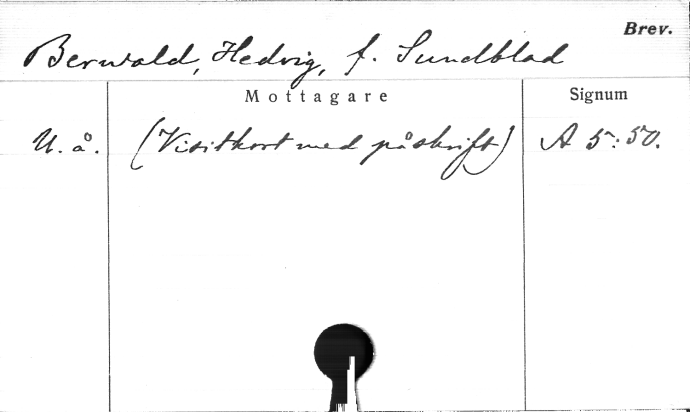 Brev.
Berwald, Hedvig, f. Sundblad
Mottagare Signum
U. å. (Visitkort med påskrift) A 5:50.